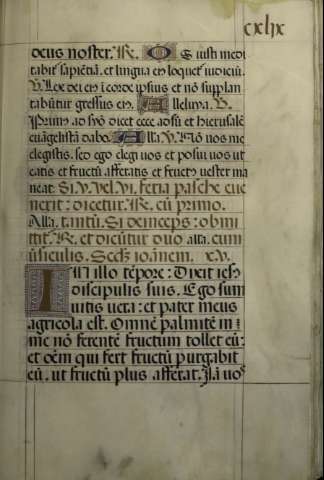 cxlix
deus noster. R. Os iusti medi
tabit͛ sapiẽtiã. et lingua ei⁹ loquet͛ iudiciũ.
V. Lex dei ei⁹ i corde ipsius et nõ supplan
tabũtur gressus ei⁹. Alleluya. V.
Primus ad syõ dicet ecce adsũ et hierusalẽ
euãgelistã dabo. Alla. V. Nõ vos me
elegistis. sed ego elegi vos et posui vos ut
eatis et fructũ afferatis et fructus vester ma
neat. Si. V. vel. VI. feria pasche eue
nerit: dicetur. R. cũ primo.
Alla. tantũ. Si deinceps: obmi
ttit͛. R. et dicũtur duo alla. cum
v̉siculis. Secd͛z ioanem. xv.
IN illo tẽpore: Dixit iesꝰ
discipulis suis. Ego sum
vitis vera: et pater meus
agricola est. Omnẽ palmitẽ in
me nõ ferentẽ fructum tollet eũ:
et oẽm qui fert fructũ purgabit
eũ. ut fructũ plus afferat. Iã vos